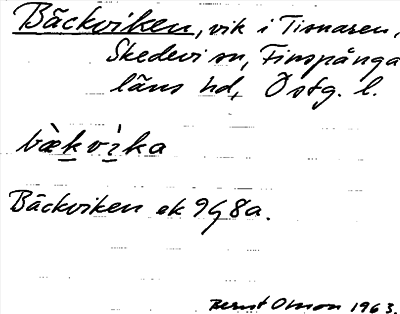 Bäckviken, vik i Tisnaren,
Skedevi sn, Finspånga
läns hd, Östg. l.
bæ̀kvìka
Bäckviken ek 9G8a.
Bernt Olsson 1963.